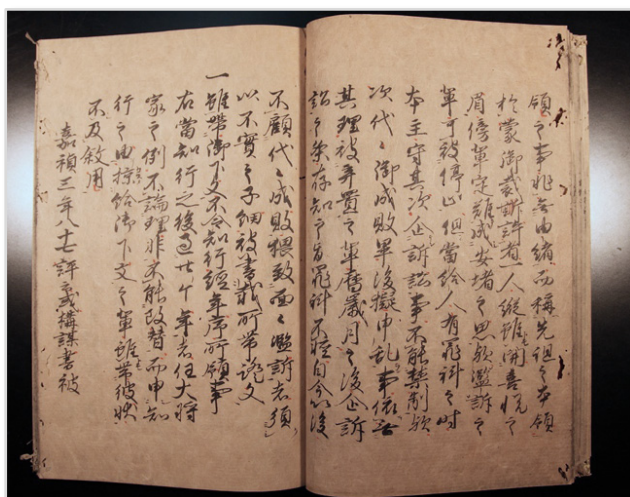 領之事非無由緒而稱先祖之本領
於蒙御裁許者一人縱雖開喜悦之
眉傍輩定難成安堵之思歟濫訴之
輩可被停止但當給人有罪科之時
本主守其次企訴訟事不能禁制歟
次代々御成敗畢後擬申乱事依無
其理被弃置之輩歴歳月之後企訴
訟之条存知之旨罪科不軽自今以後
不顧代々成敗猥致面々濫訴者須
以不實之子細被書載所帯證文
一雖帯御下文不令知行經年序所領事
右當知行之後過廿ケ年者任大将
家之例不論理非不能改替而申知
行之由掠給御下文之輩雖帯彼状
不及敘用
嘉禎三年八十七評 構謀書被